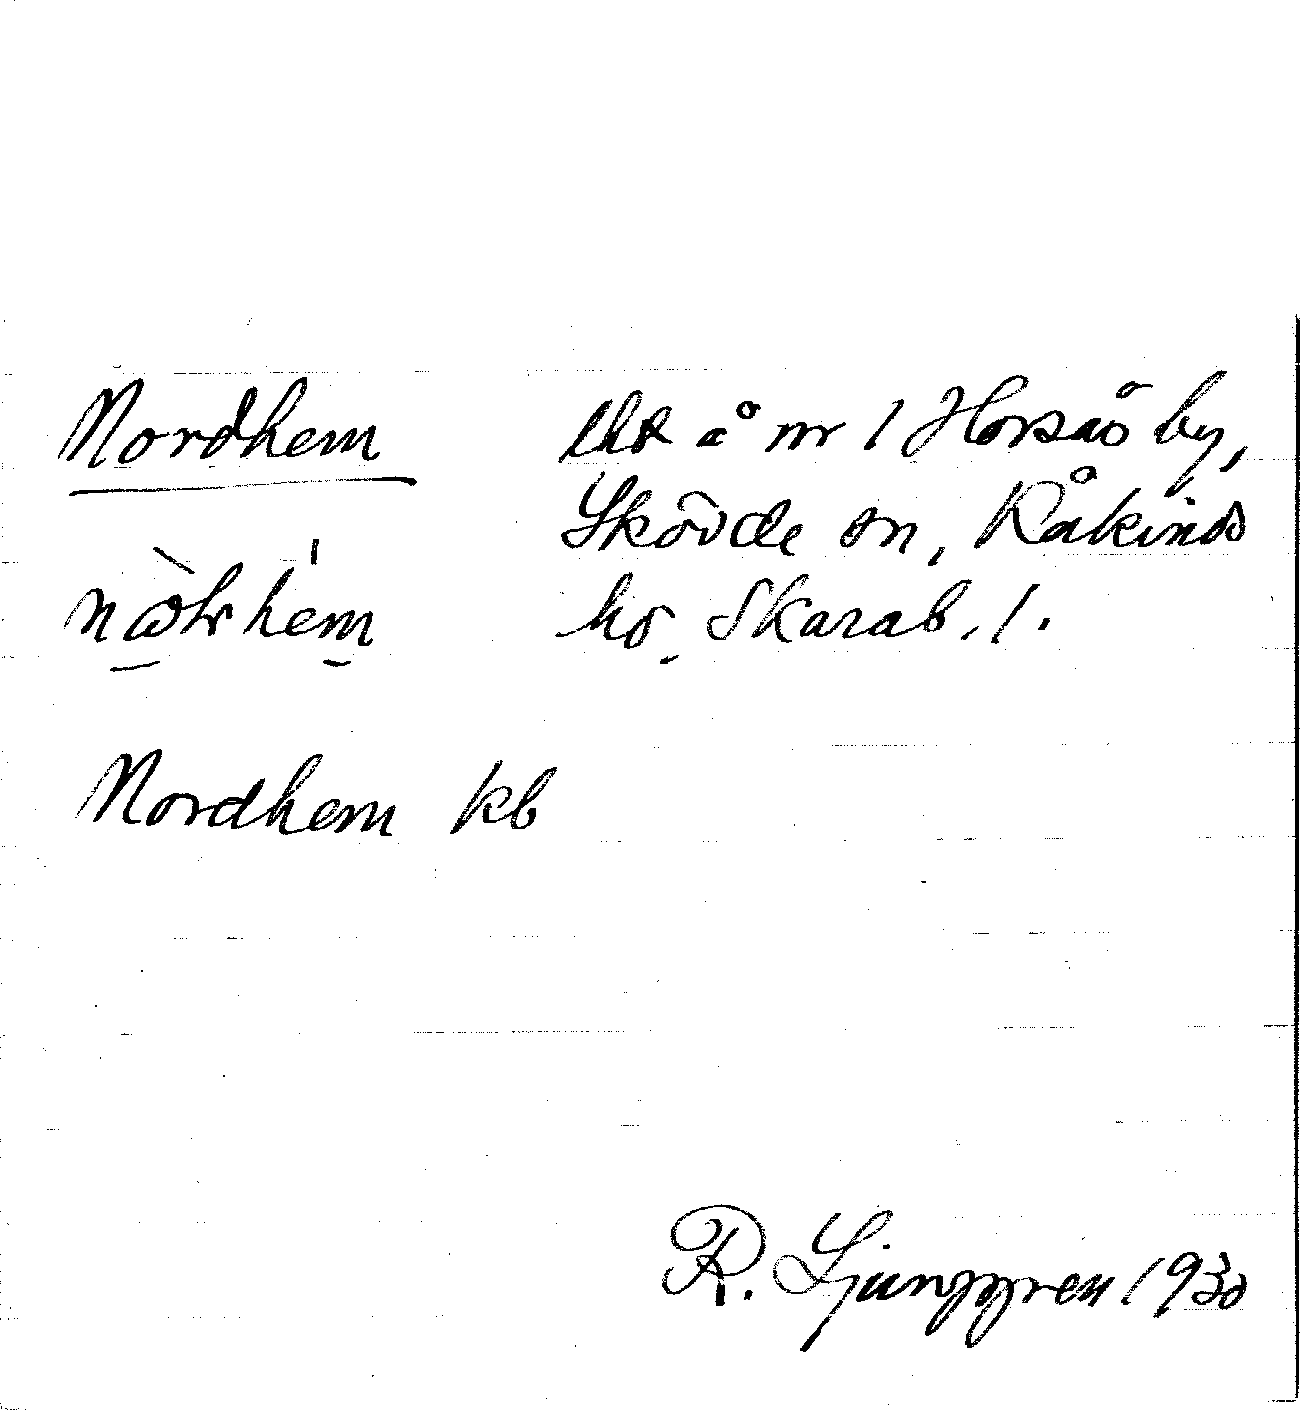 Nordhem
lht å nr 1 Horsås by,
Skövde sn, Kåkinds
hd Skarab. l.
Nordhem kb
R. Ljunggren 1930